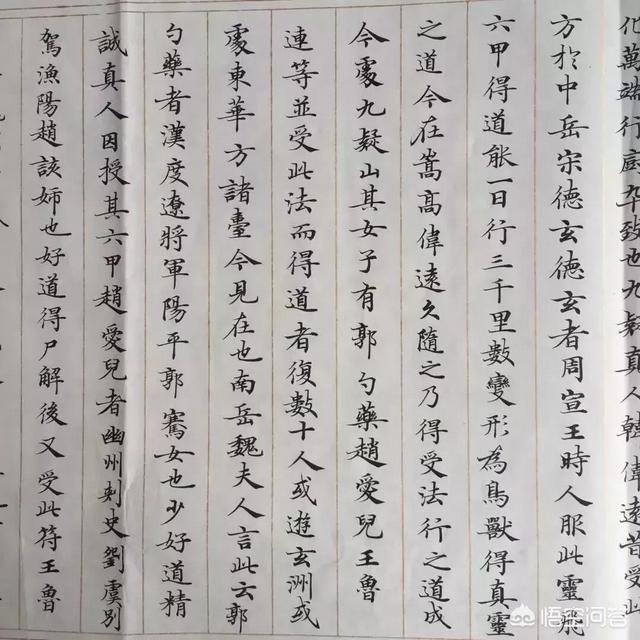 化萬端行廚卒致也九疑真人韓偉遠昔受此
方於中岳宋德玄德玄者周宣王時人服此靈飛
六甲得道能一日行三千里數變形為鳥獸得真靈
之道今在嵩高偉遠久隨之乃得受法行之道成
今處九疑山其女子有郭勺藥趙愛兒王魯
連等並受此法而得道者復數十人或遊玄洲或
處東華方諸臺今見在也南岳魏夫人言此云郭
勺藥者漢度遼將軍陽平郭騫女也少好道精
誠真人因授其六甲趙愛兒者幽州刺史劉虞別
駕漁陽趙該姊也好道得尸解後又受此符王魯
悟空问答